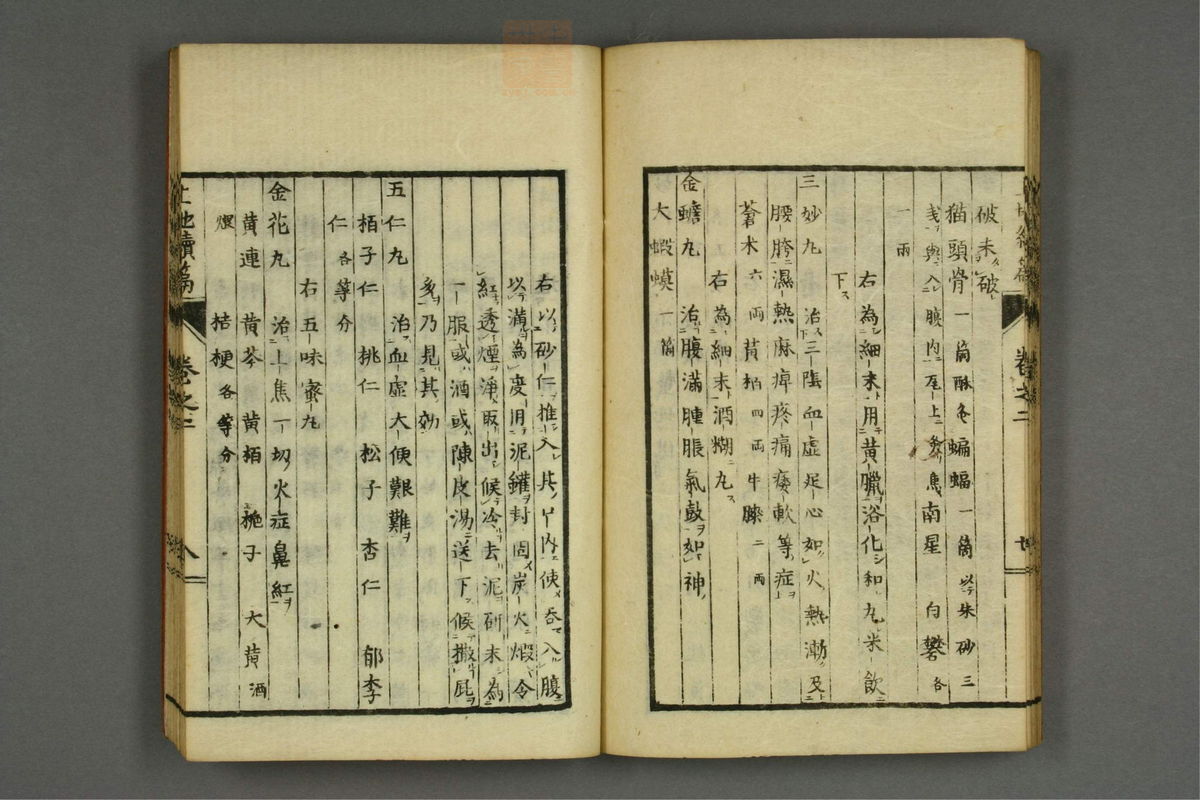 破未破
猫頭骨一箇酥炙蝙蝠一箇以朱砂三
戔與入腹内瓦上炙焦南星 白礬各
一兩
右為細末用黄臘浴化和丸米飲
下
三妙丸 治三陰血虚足心如火熱漸及
腰胯濕熱麻痺疼痛痿軟等症
蒼木六両黄栢四両牛膝二両
右為細末酒糊丸
金蟾丸 治腹滿腫脹氣鼓如神
大蝦蟆一箇
右以砂仁推入其口内使吞入腹
以滿為度用泥鑵封固炭火煅令
紅透煙淨取出候冷去泥研末為
一服或酒或陳皮湯送下候撒屁
多乃見其効
五仁丸 治血虚大便艱難
栢子仁 桃仁 松子 杏仁 郁李
仁各等分
右五味蜜丸
金花丸 治上焦一切火症鼻紅
黄連 黄芩 黄栢 梔子 大黄酒
煨 桔梗各等分
卷之二
八
卷之二
七